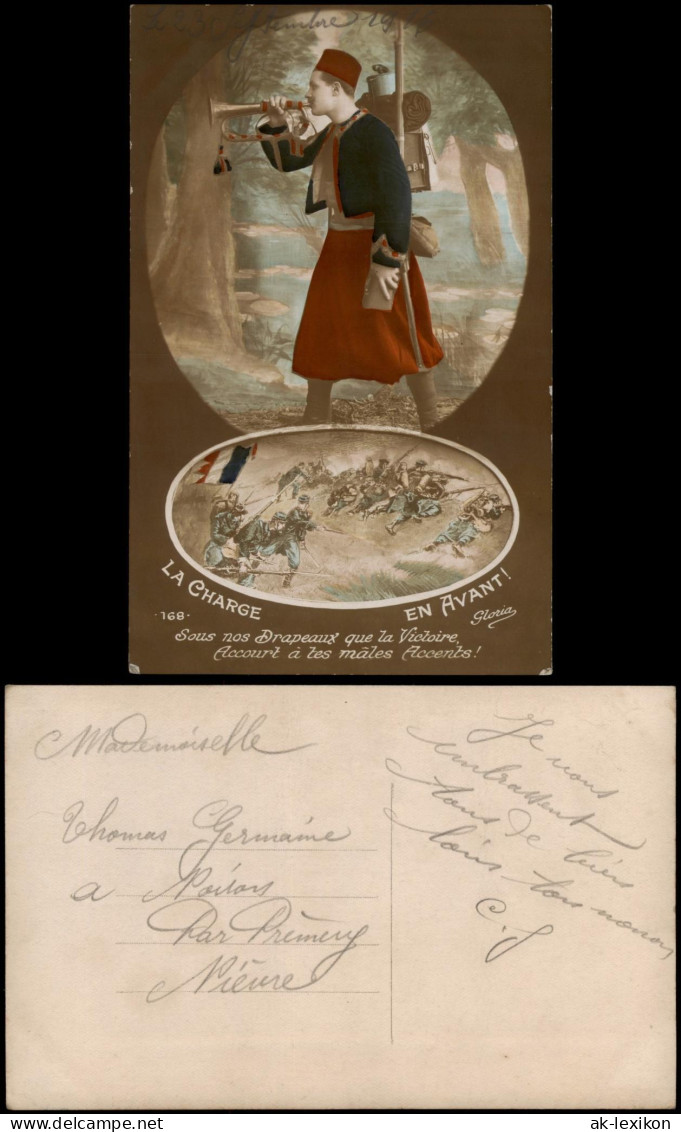 Le 23 Septembre
LA CHARGE
EN AVANT!
-168-
Gloria
Sous nos Drapeaux que la Victoire,
Accourt à tes mâles Accents!
Mademoiselle
Thomas Germaine
a
Par Prémery
Nièvre
Je vous
embrassent
tous de bien
loins ton nonon
C. J
delcampe.net
ak-lexikon